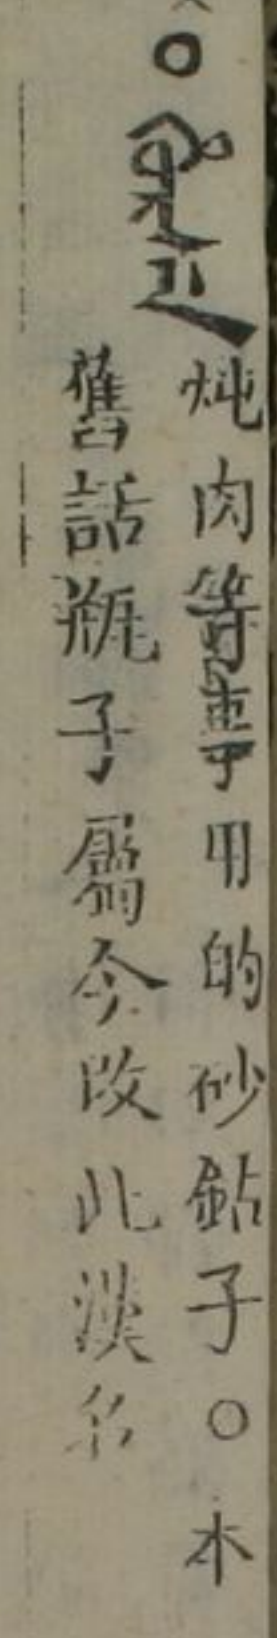 炖肉等事用的砂鈷子○本
舊話瓶子屬今改此漢名